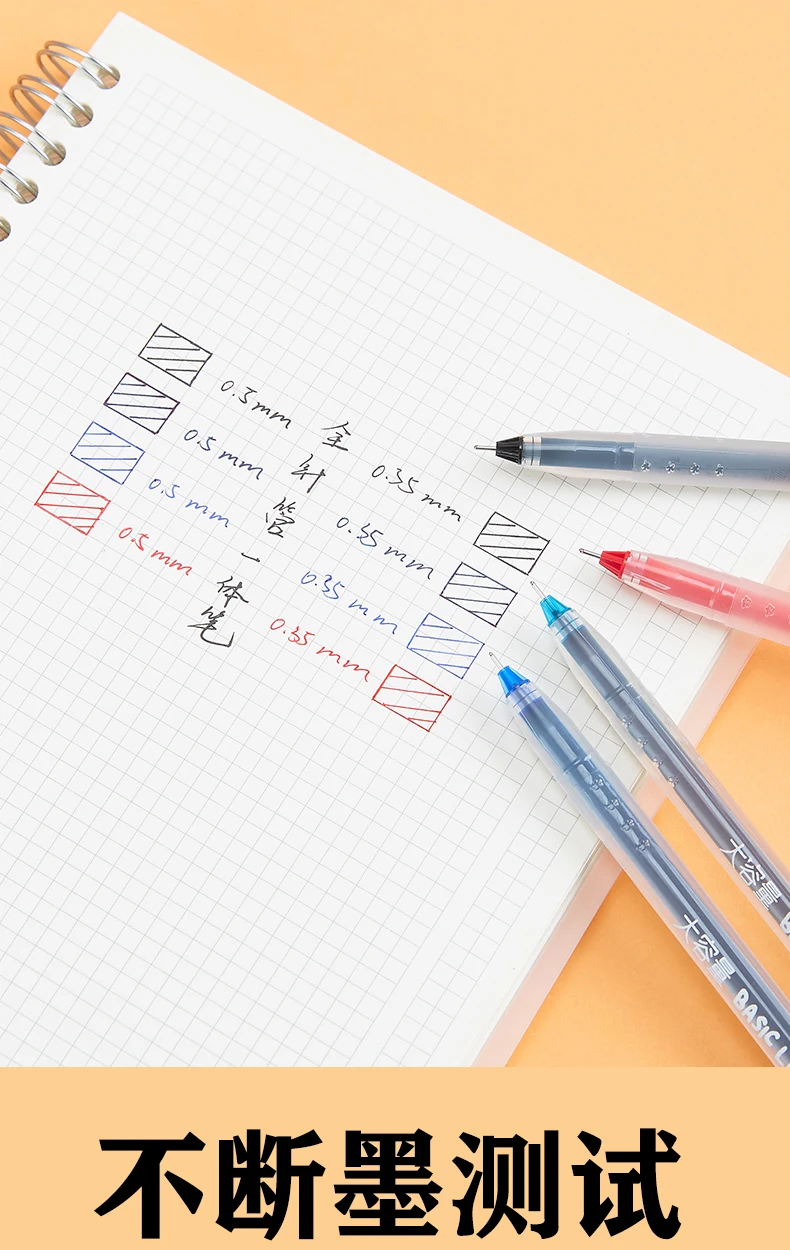 0.5mm
0.5mm
0.5mm
0.5mm
全针管一体笔
0.35mm
0.35mm
0.35mm
0.35mm
大容量 B
大容量 BASIC L
不断墨测试